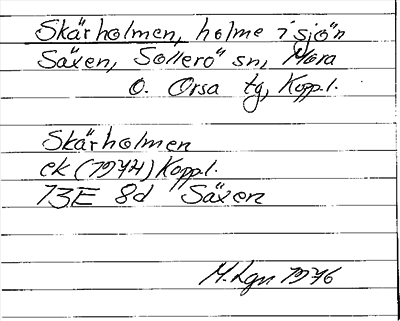 Skärholmen, holme i sjön
Säxen, Sollerö sn, Mora
o. Orsa tg, Koppl.
Skärholmen
ek (1974) Koppl.
13E 8d Säxen
M. Lgn 1976